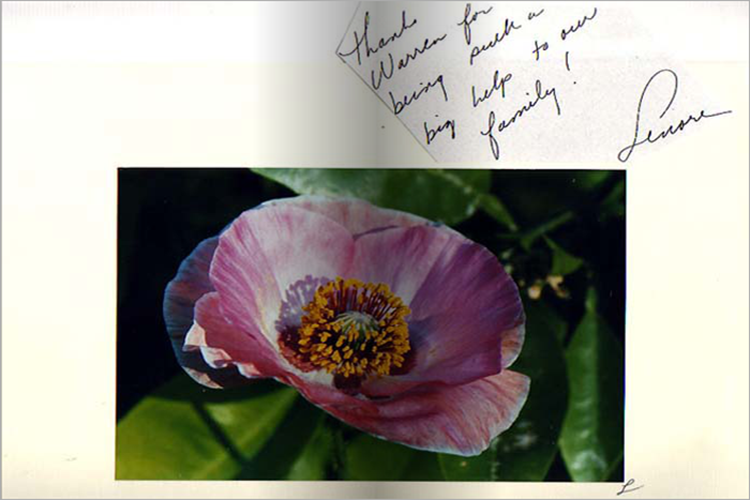 Thanks
Warren for
being such a
big help to our
family!
Lenore
L